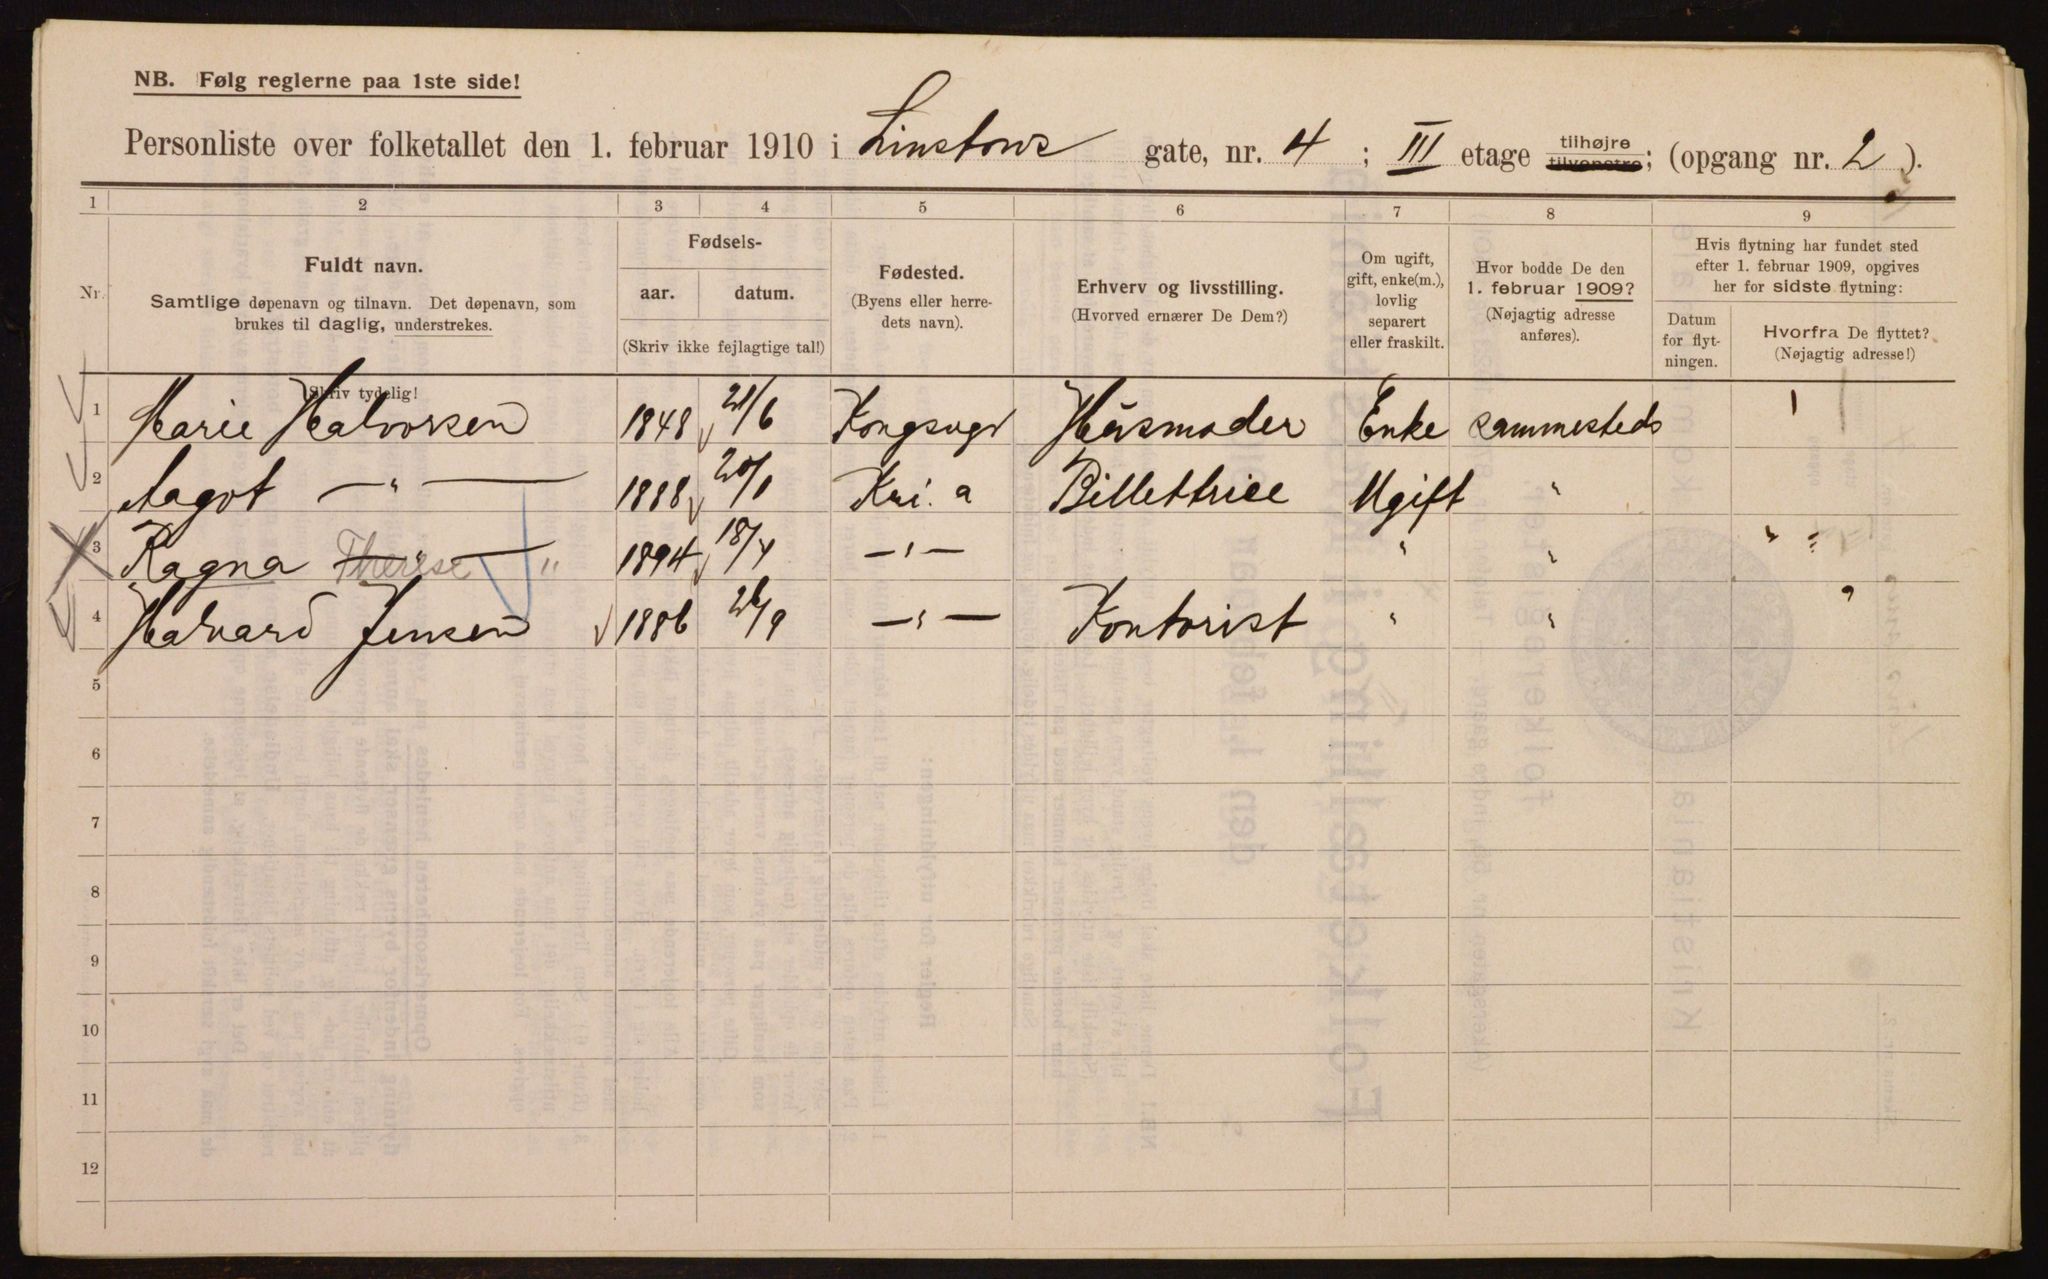 NB. Følg reglerne paa 1ste side!
Personliste over folketallet den 1. februar 1910 i Linstows gate, nr. 4 ; III etage tilhøjre tilvenstre; (opgang nr. 2 ).
1 2 3 4 5 6 7 8 9
Nr.
Fuldt navn.
Samtlige døpenavn og tilnavn. Det døpenavn, som
brukes til daglig, understrekes.
Skriv tydelig!
Fødsels-
aar. datum.
(Skriv ikke fejlagtige tal!)
Fødested.
(Byens eller herre-
dets navn).
Erhverv og livsstilling.
(Hvorved ernærer De Dem?)
Om ugift,
gift, enke(m.),
lovlig
separert
eller fraskilt.
Hvor bodde De den
1. februar 1909?
(Nøjagtig adresse
anføres).
Hvis flytning har fundet sted
efter 1. februar 1909, opgives
her for sidste flytning:
Datum
for flyt-
ningen.
Hvorfra De flyttet?
(Nøjagtig adresse!)
1 Marie Halvorsen 1848 21/6 Husmoder Enke sammesteds
2 Aagot —"— 1888 20/1 Kri.a Billettrice Ugift "
3 Ragna Therese — " 1894 18/4 —"— " "
4 Halvard Jensen 1886 26/9 —"— Kontorist " "
5
6
7
8
9
10
11
12